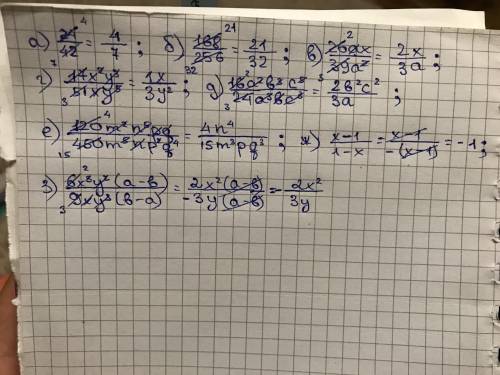 а) 24⁴/42₇ = 4/7 ; б) 168²¹/256₃₂ = 21/32 ; в) 26²ax/39a² = 2x/3a ;
г) 17x²y³/51₃xy⁵ = 1x/3y² ; д) 16²a²b³c⁵/24₃a³bc³ = 2b²c²/3a ;
е) 120⁴m²n⁵pq/450₁₅m⁵np²q⁴ = 4n⁴/15m³pq³ ; ж) x-1/1-x = x-1/-(x-1) = -1 ;
з) 6²x³y²(a-b)/9₃xy³(b-a) = 2x²(a-b)/-3y(a-b) = - 2x²/3y